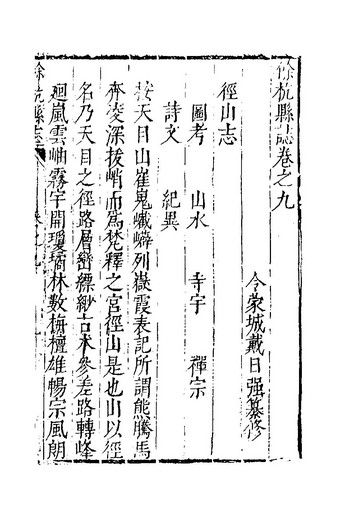 餘杭縣誌卷之九
令蒙城戴日强纂修
徑山志
圖考 山水 寺宇 禪宗
詩文 紀異
按天目山崔嵬巉嶙列嶽霞表記所謂龍騰馬
齊凌深拔峭而爲梵釋之宮徑山是也山以徑
名乃天目之徑路層巒縹緲古木參差路轉峰
廻嵐雲岫霧宇開瓊璚林敷栴檀雄暢宗風朗